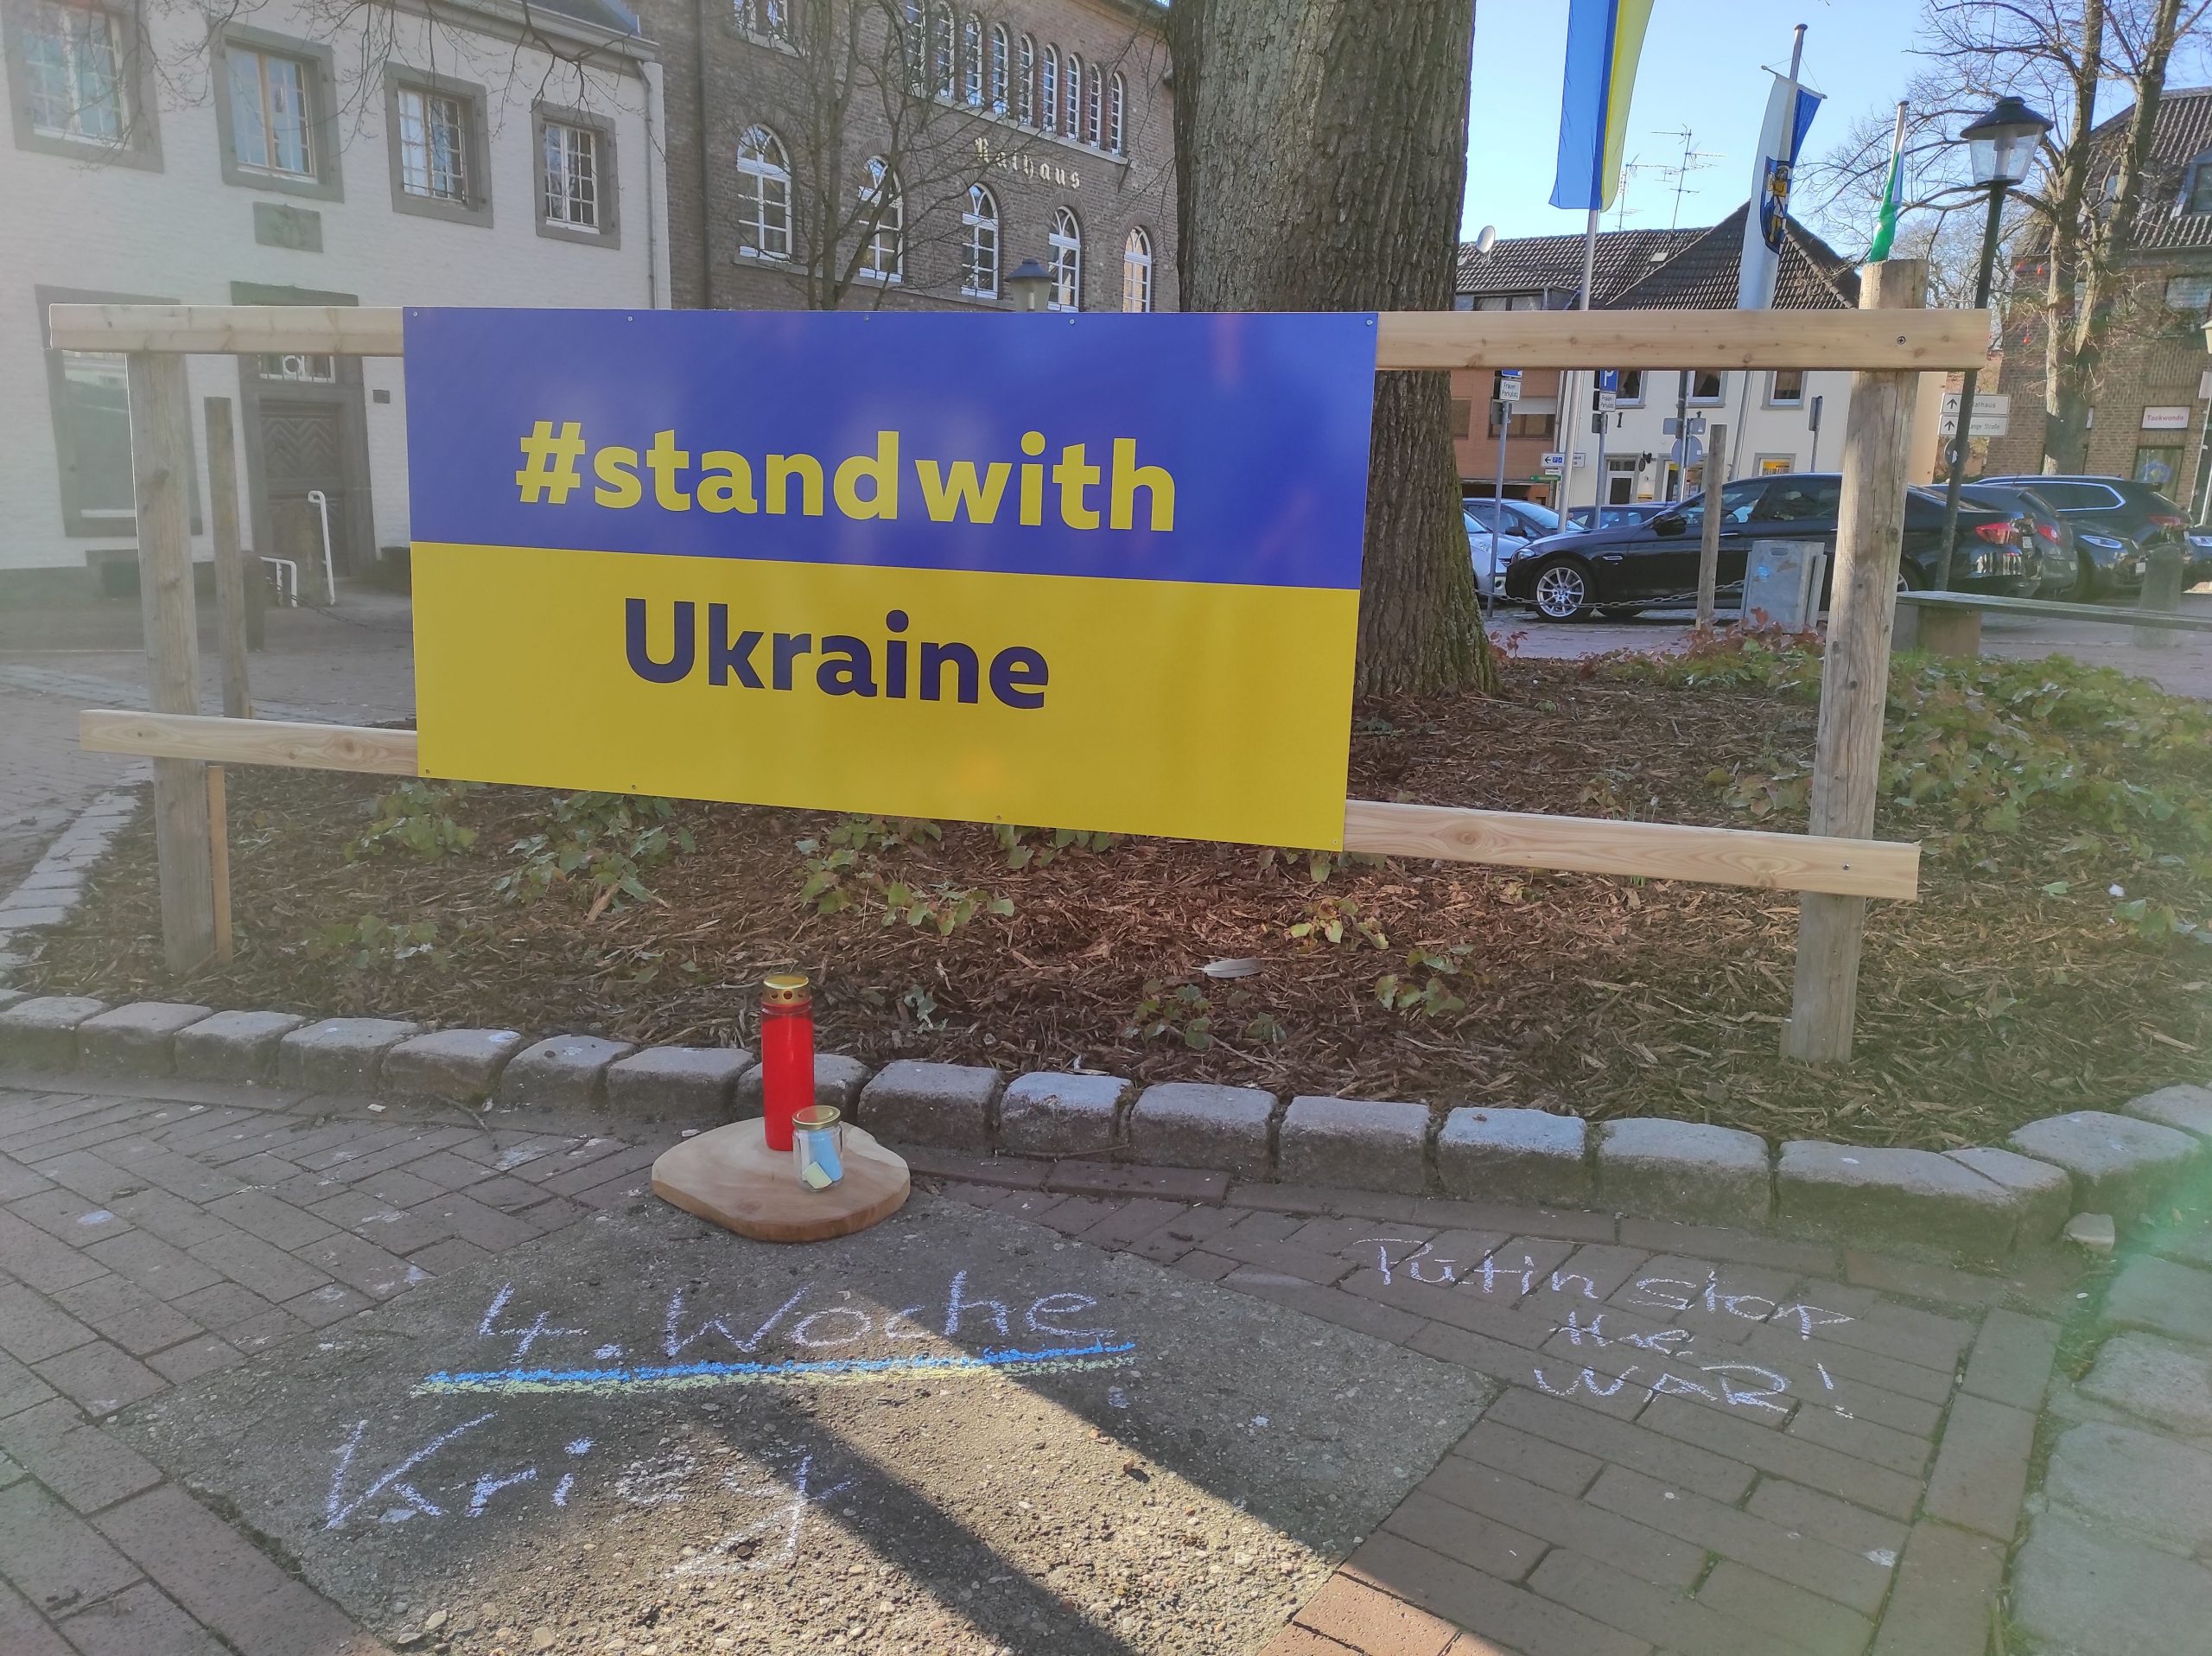 Rathaus
#standwith
Ukraine
P
Taekwondo
4. Woche
Krieg
Putin stop
the
WAR!